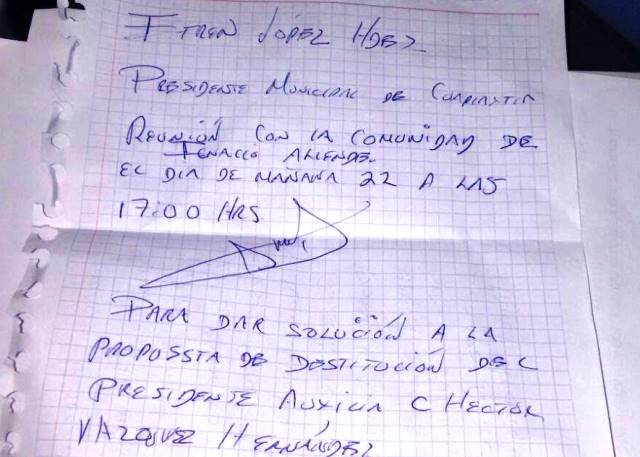 EFREN LÓPEZ HDEZ
PRESIDENTE MUNICIPAL DE
REUNIÓN CON LA COMUNIDAD DE
IGNACIO ALLENDE.
EL DIA DE MAÑANA 22 A LAS
17:00 HRS
PARA DAR SOLUCIÓN A LA
PROPOSSTA DE DESTITUCIÓN DEL
PRESIDENTE AUXILIA C HECTOR
VAZQUEZ HERNÁNDEZ